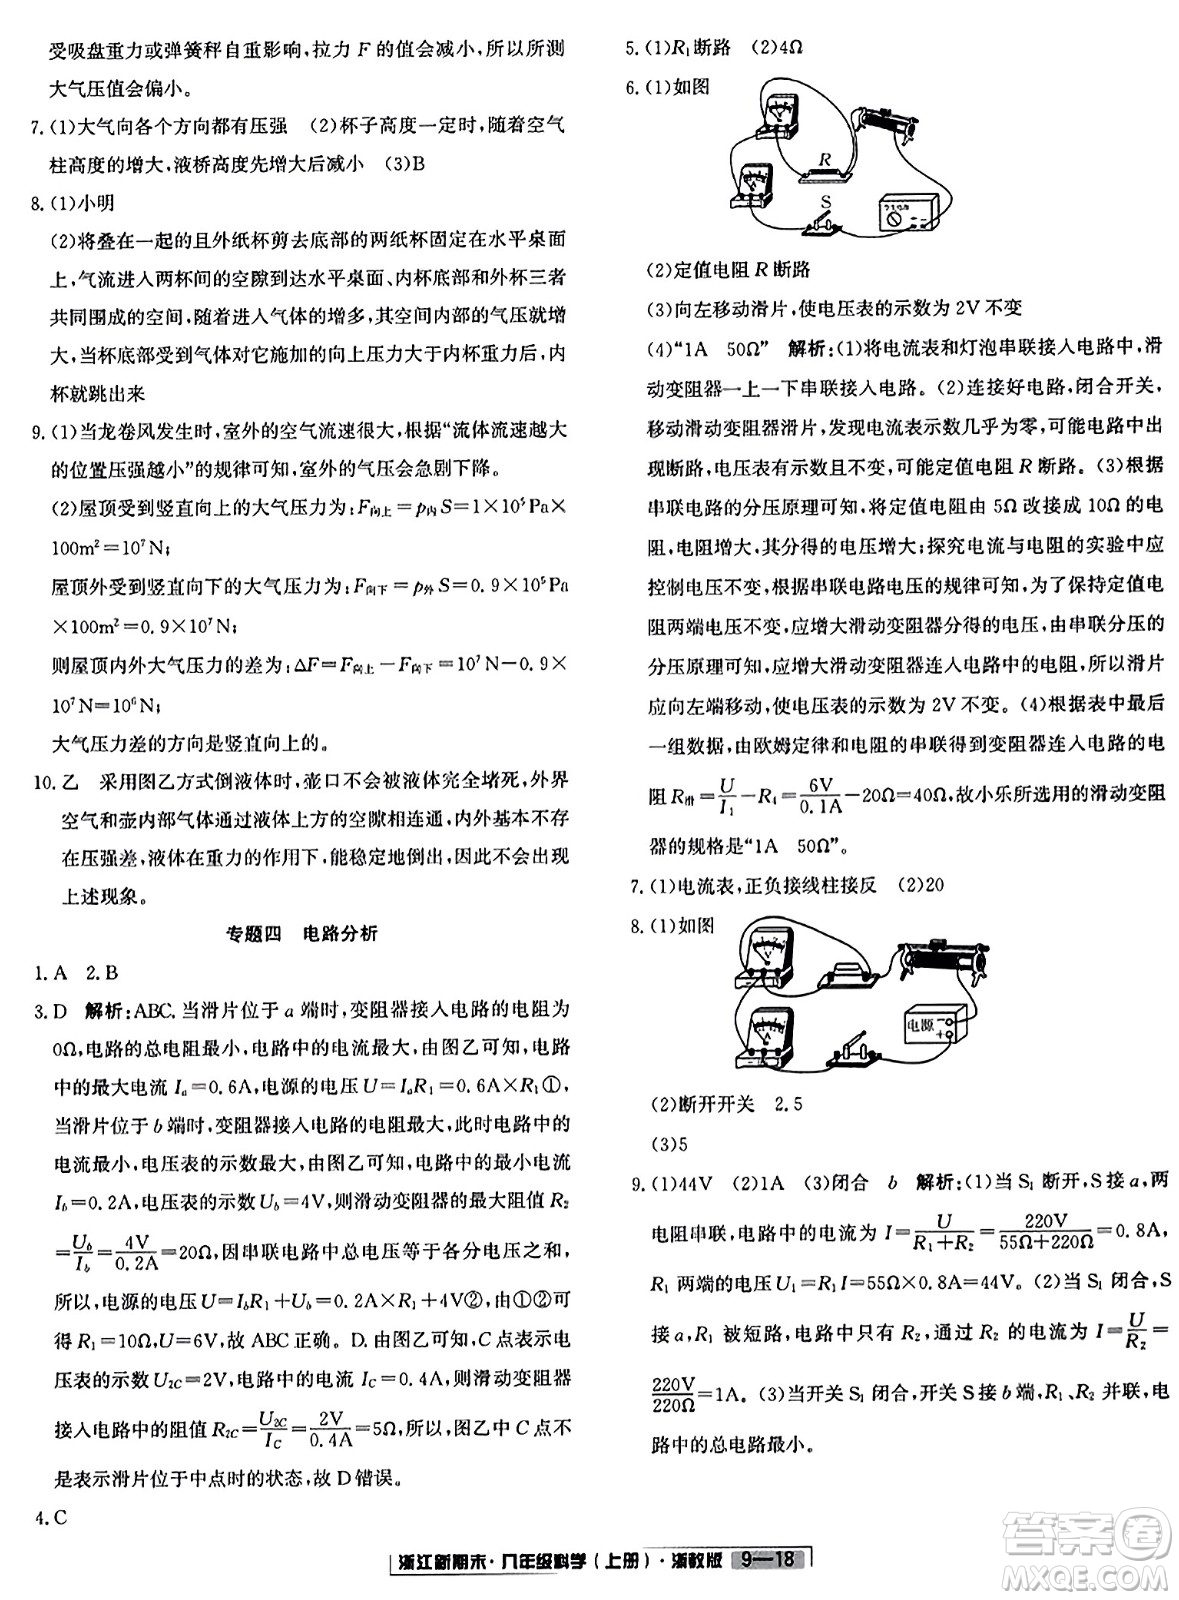 受吸盘重力或弹簧秤自重影响,拉力 F 的值会减小,所以所测
大气压值会偏小。
7. (1)大气向各个方向都有压强 (2)杯子高度一定时,随着空气
柱高度的增大,液桥高度先增大后减小 (3)B
8. (1)小明
(2)将叠在一起的且外纸杯剪去底部的两纸杯固定在水平桌面
上,气流进入两杯间的空隙到达水平桌面、内杯底部和外杯三者
共同围成的空间,随着进入气体的增多,其空间内部的气体压强增
大,当杯底部受到气体对它施加的向上压力大于内杯重力时,内
杯就跳出来
9. (1)当龙卷风发生时,室外的空气流速很大,根据“流体流速越大
的位置压强越小”的规律可知,室外的气压会急剧下降。
(2)屋顶受到竖直向上的大气压力为:F向上=p内S=1×10⁵Pa×
100m²=10⁷N;
屋顶外受到竖直向下的大气压力为:F向下=p外S=0.9×10⁵Pa
×100m²=0.9×10⁷N;
则屋顶内外大气压力的差为:ΔF=F向上-F向下=10⁷N-0.9×
10⁷N=10⁶N;
大气压力差的方向是竖直向上的。
10. 乙 采用图乙方式倒液体时,壶口不会被液体完全堵死,外界
空气和壶内部气体通过液体上方的空隙相连通,内外基本不存
在压强差,液体在重力的作用下,能稳定地倒出,因此不会出现
上述现象。
专题四 电路分析
1. A 2. B
3. D 解析:ABC. 当滑片位于 a 端时,变阻器接入电路的电阻为
0Ω,电路的总电阻最小,电路中的电流最大。由图乙可知,电路
中的最大电流 Iₐ=0.6A,电源的电压 U=IₐR₁=0.6A×R₁①,
当滑片位于 b 端时,变阻器接入电路的电阻最大,此时电路中的
电流最小,电压表的示数最大。由图乙可知,电路中的最小电流
I_b=0.2A,电压表的示数 U_b=4V,则滑动变阻器的最大阻值 R₂
=U_b/I_b=4V/0.2A=20Ω,因串联电路中总电压等于各分电压之和,
所以,电源的电压 U=I_bR₁+U_b=0.2A×R₁+4V②,由①②可
得 R₁=10Ω,U=6V,故 ABC 正确。D. 由图乙可知,C 点表示电
压表的示数 U₂C=2V,电路中的电流 I_C=0.4A,滑动变阻器
接入电路中的阻值 R₂C=U₂C/I_C=2V/0.4A=5Ω,由图乙中 C 点不
是表示滑片位于中点时的状态,故 D 错误。
4. C
5. (1)R₁断路 (2)4Ω
6. (1)如图
R
S
(2)定值电阻 R 断路
(3)向左移动滑片,使电压表的示数为 2V 不变
(4)“1A 50Ω” 解析:(1)将电流表和灯泡串联接入电路中,滑
动变阻器一上一下串联接入电路。(2)连接好电路,闭合开关,
移动滑动变阻器滑片,发现电流表示数几乎为零,可能电路中出
现断路,电压表有示数且不变,可能定值电阻 R 断路。(3)根据
串联电路的分压原理可知,将定值电阻由 5Ω 改接成 10Ω 的电
阻,电阻增大,其分得的电压增大;探究电流与电阻的实验中应
控制电压不变,根据串联电路电压的规律可知,为了保持定值电
阻两端电压不变,应增大滑动变阻器分得的电压,由串联电路的
分压原理可知,应增大滑动变阻器连入电路中的电阻,所以滑片
应向左端移动,使电压表的示数为 2V 不变。(4)根据表中最后
一组数据,由欧姆定律和电阻的串联得到变阻器连入电路的电
阻 R滑=U/I₁-R₄=6V/0.1A-20Ω=40Ω,故小乐所选用的滑动变阻
器的规格是“1A 50Ω”。
7. (1)电流表,正负接线柱接反 (2)20
8. (1)如图
电源 - +
(2)断开开关 2.5
(3)5
9. (1)44V (2)1A (3)闭合 b 解析:(1)当 S₁ 断开,S 接 a,两
电阻串联,电路中的电流为 I=U/(R₁+R₂)=220V/(55Ω+220Ω)=0.8A,
R₁ 两端的电压 U₁=R₁I=55Ω×0.8A=44V。(2)当 S₁ 闭合,S
接 a,R₁ 被短路,电路中只有 R₂,通过 R₂ 的电流为 I=U/R₂=
220V/220Ω=1A。(3)当开关 S₁ 闭合,开关 S 接 b 端,R₁、R₂ 并联,电
路中的总电路最小。
浙江新期末·八年级科学(上册)·浙教版 9—18
作业精灵
MXQE.COM